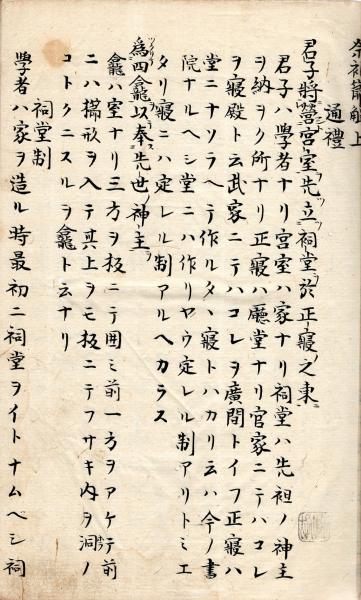 祭祀簡解上
通禮
君子將營宮室先立祠堂ヲ於正寢ノ之東ニ
君子ハ學者ナリ宮室ハ家ナリ祠堂ハ先祖ノ神主
ヲ納ヲク所ナリ正寢ハ廳堂ナリ官家ニテハコレ
ヲ寢殿ト云武家ニテハコレヲ廣間トイフ正寢ハ
堂ニナソラヘテ作ルタヽ寢トハカリ云ハ今ノ書
院ナルヘシ堂ニハ作リヤウ定レル制アリトミエ
タリ寢ニハ定レル制アルヘカラス
為四龕以奉先世ノ神主ヲ
龕ハ室ナリ三方ヲ板ニテ囲ミ前一方ヲアケテ前
ニハ
ヲ入テ其上ヲモ板ニテフサキ内ヲ洞ノ
コトクニスルヲ龕ト云ナリ
祠堂制
學者ハ家ヲ造ル時最初ニ祠堂ヲイトナムベシ祠